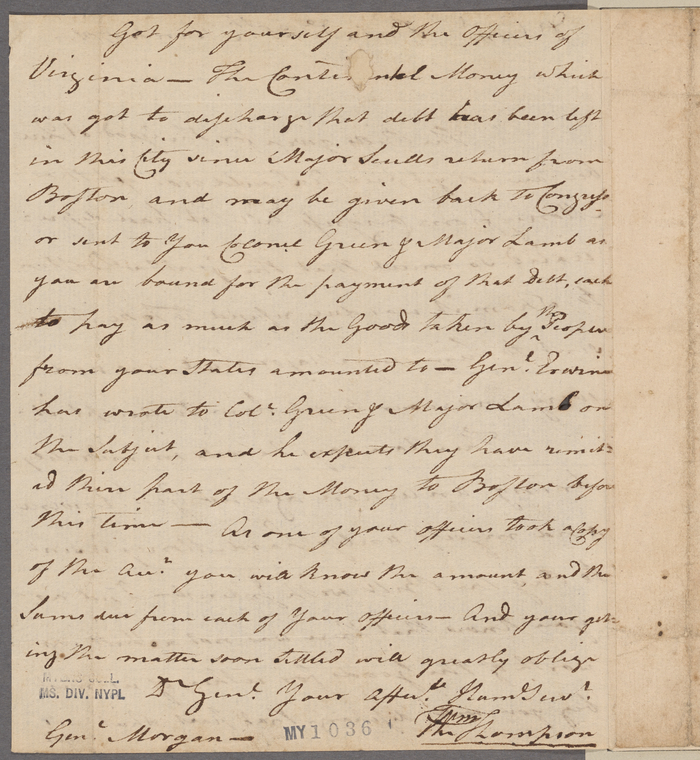 Got for yourself and the Officers of
Virginia — The Conti ntal Money which
was got to discharge that debt has been left
in this City since Major Sculls return from
Boston, and may be given back to Congress
or sent to You Colonel Green & Major Lamb as
you are bound for the payment of that Debt, each
to pay as much as the Goods taken by the People
from your States amounted to — Genl. Erwine
has wrote to Colo. Green & Major Lamb on
the Subject, and he expects they have remit=
ed their part of the Money to Boston before
this time — As one of your officers took a Copy
of the Acct. you will know the amount, and the
Sums due from each of Your officers — And your get=
ing the matter soon settled will greatly oblige
Dr Genl. Your Affect. Humb Servt.
Wm Thompson
Genl. Morgan —
MYERS COLL.
MS. DIV. NYPL
MY1036